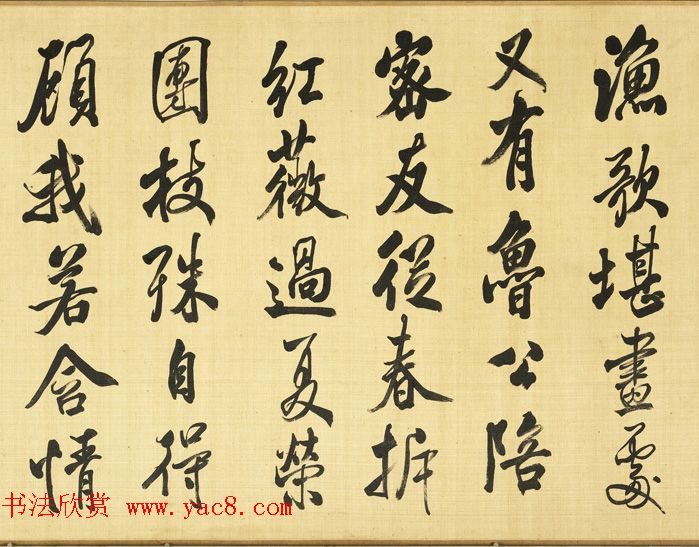 漁歌堪畫處
又有魯公陪
密友從春拆
紅薇過夏榮
團枝殊自得
顧我若含情
书法欣赏 www.yac8.com